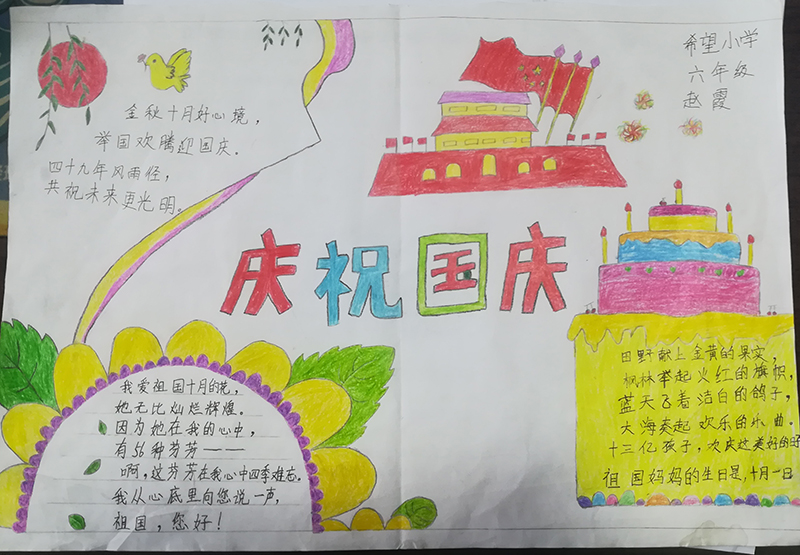 希望小学
六年级
赵霞
金秋十月好心境，
举国欢腾迎国庆。
四十九年风雨径，
共祝未来更光明。
庆祝国庆
我爱祖国十月的花，
她无比灿烂辉煌。
因为她在我的心中，
有56种芬芳——
啊，这芬芳在我心中四季难忘。
我从心底里向您说一声，
祖国，您好！
田野献上金黄的果实，
枫林举起火红的旗帜，
蓝天飞着洁白的鸽子，
大海奏起欢乐的乐曲。
十三亿孩子，欢庆这美好的日
祖国妈妈的生日是，十月一日